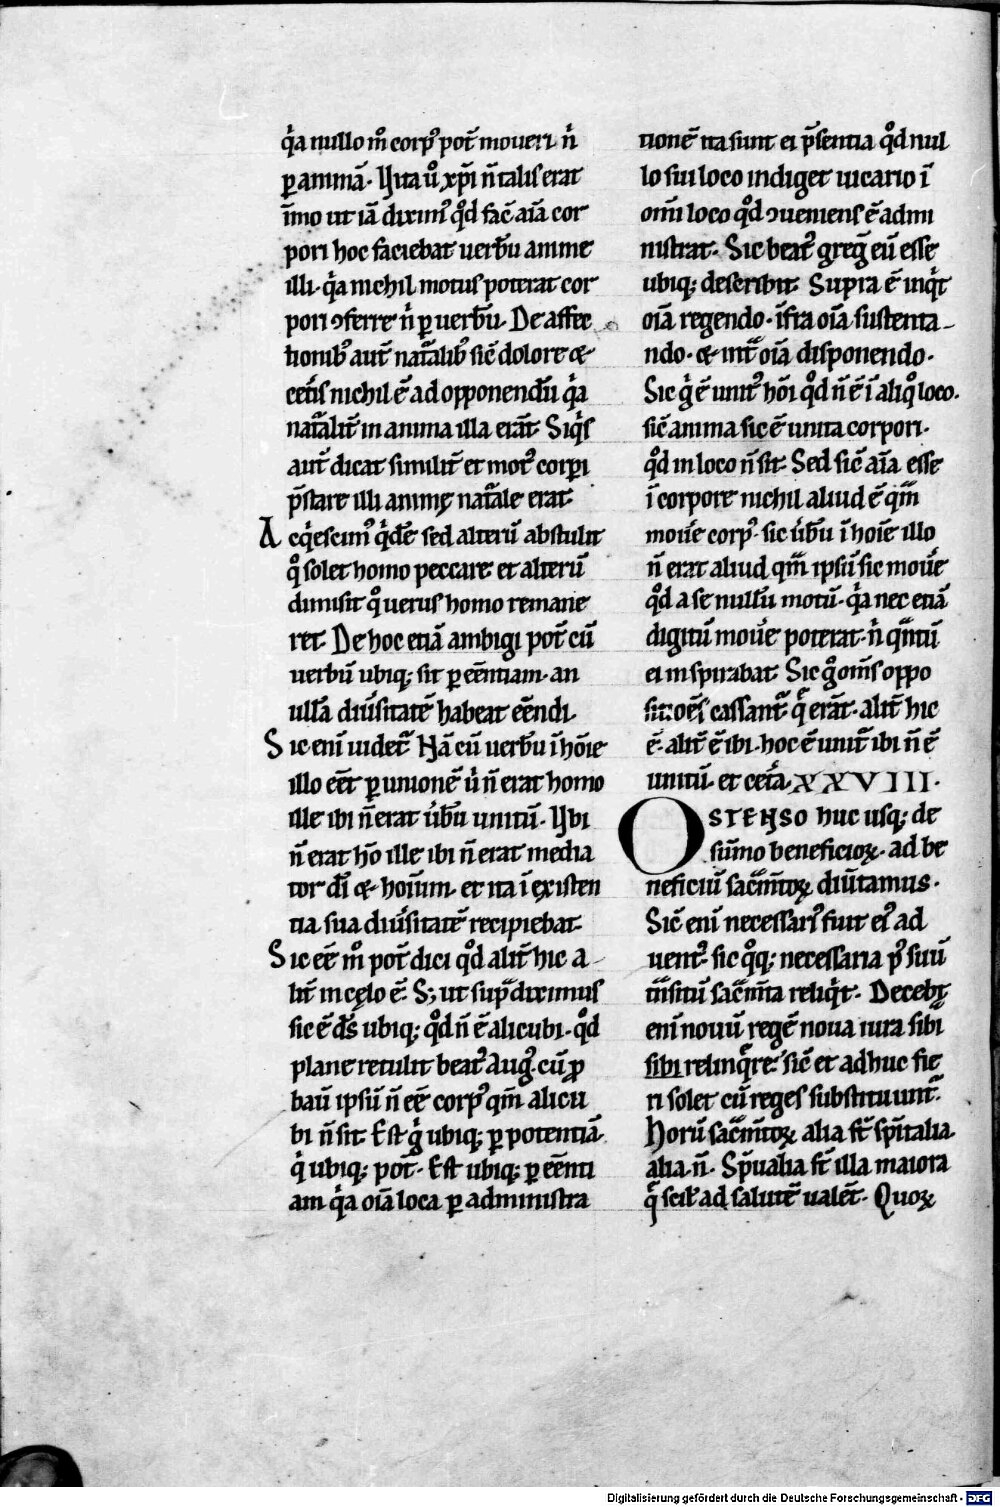 qͥa nullo m̊ corpꝰ pot̃ moueri nͥ
ꝑ animã. N ita ů xp̃i ñ talis erat
ĩmo ut iã diximꝰ qͦd fac̃ aĩa cor
pori hoc faciebat uerbũ anime
illi. qͥa nichil motus poterat cor
pori ꝯferre nͥ ꝑ uerbũ. De affec
tionibꝰ aut̃ nat̃alibꝰ sic̃ dolore &
cet̃is nichil ẽ ad opponendũ qͥa
nat̃alit̃ in anima illa erãt. Siqͥs
aut̃ dicat similit̃ et motꝰ corꝑi
p̃stare illi animę nat̃ale erat.
Acqͥescimꝰ qͥdẽ sed alterũ abstulit
qͦ solet homo peccare et alterũ
dimisit qͦ uerus homo remane
ret. De hoc etiã ambigi pot̃ cũ
uerbũ ubiqꝫ sit ꝑ eẽntiam. an
ullã diũsitatẽ habeat eẽndi.
Sic eni uidet̃. Nã cũ uerbũ ĩ hoĩe
illo eẽt ꝑ unionẽ uͥ ñ erat homo
ille ibi ñ erat ůbũ unitũ. N ibi
ñ erat hõ ille ibi ñ erat media
tor dĩ & hoĩum. et ita ĩ existen
tia sua diũsitatẽ recipiebat.
Sic eẽ m̊ pot̃ dici qͦd alit̃ hic a
lit̃ in cęlo ẽ. Sꝫ ut sup̃ diximus
sic ẽ ds̃ ubiqꝫ qͦd ñ ẽ alicubi. qͦd
plane retulit beatꝰ Aug̊. cũ ꝓ
baũ ipsũ ñ eẽ corpꝰ qm̃ alicu
bi ñ sit. Est gͥ ubiqꝫ ꝑ potentiã
qͥ ubiqꝫ pot̃. Est ubiqꝫ ꝑ eẽnti
am qͥa oĩa loca ꝑ administra
tionẽ ita sunt ei p̃sentia qͦd nul
lo sui loco indiget uicario ĩ
om̃i loco qͦd ꝯueniens ẽ admi
nistrat. Sic beatꝰ greg̃ eũ esse
ubiqꝫ describit. Supra ẽ inqͥt
oĩa regendo. ĩfra oĩa sustenta
ndo. & int̃ oĩa disponendo.
Sic g̊ ẽ unitꝰ hõi qͦd ñ ẽ ĩ aliqͦ loco.
sic̃ anima sic ẽ unita corpori.
qͦd in loco ñ sit. Sed sic̃ aĩa esse
ĩ corpore nichil aliud ẽ qm̃
mouẽe corpꝰ. sic ůbũ ĩ hoĩe illo
ñ erat aliud qm̃ ipsũ sic mouẽe
qͦd a se nullũ motũ. qͥa nec etiã
digitũ mouẽe poterat. nͥ qñtũ
ei inspirabat. Sic g̊ om̃s oppo
sitioẽs cassant̃ q̃ erãt. alit̃ hic
ẽ. alit̃ ẽ ibi. hoc ẽ unit̃ ibi ñ ẽ
unitũ. et cet̃a. XXVIII.
OSTENSO huc usqꝫ de
sũmo beneficioꝝ. ad be
neficiũ sac̃m̃toꝝ diũtamus.
Sic̃ eni necessariꝰ fuit eiꝰ ad
uentꝰ. sic qͦqꝫ necessaria pꝰ suũ
t̃nsitũ sac̃m̃ta reliqͥt. Decebͭ
eni nouũ regẽ noua iura sibi
sibi relinqͥre. sic̃ et adhuc fie
ri solet cũ reges substituunt̃.
Horũ sac̃m̃toꝝ alia st̃ sp̃italia
alia ñ. Sp̃ualia st̃ illa maiora
q̃ scil̃ ad salutẽ ualẽt. Quoꝝ
Digitalisierung gefördert durch die Deutsche Forschungsgemeinschaft - DFG